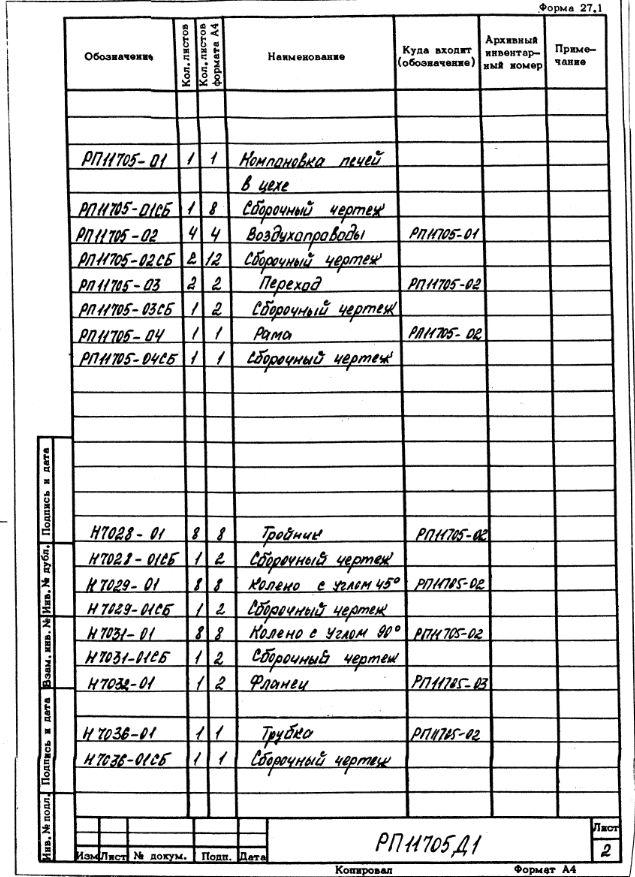 Форма 27.1
Обозначение Кол. листов Кол. листов формата А4 Наименование Куда входит (обозначение) Архивный инвентар-ный номер Приме-чание
РП11705-01 1 1 Компановка печей
в цехе
РП11705-01СБ 1 8 Сборочный чертеж
РП11705-02 4 4 Воздухаправоды РП11705-01
РП11705-02СБ 2 12 Сборочный чертеж
РП11705-03 2 2 Переход РП11705-02
РП11705-03СБ 1 2 Сборочный чертеж
РП11705-04 1 1 Рама РП11705-02
РП11705-04СБ 1 1 Сборочный чертеж
Н7028-01 8 8 Тройник РП11705-02
Н7028-01СБ 1 2 Сборочный чертеж
Н7029-01 8 8 Колено с углом 45° РП11705-02
Н7029-01СБ 1 2 Сборочный чертеж
Н7031-01 8 8 Колено с углом 90° РП11705-02
Н7031-01СБ 1 2 Сборочный чертеж
Н7032-01 1 2 Фланец РП11705-03
Н7036-01 1 1 Трубка РП11705-02
Н7036-01СБ 1 1 Сборочный чертеж
Подпись и дата
Инв. № дубл.
Взам. инв. №
Подпись и дата
Инв. № подл.
Изм Лист № докум. Подп. Дата
РП11705Д1
Лист
2
Копировал Формат А4